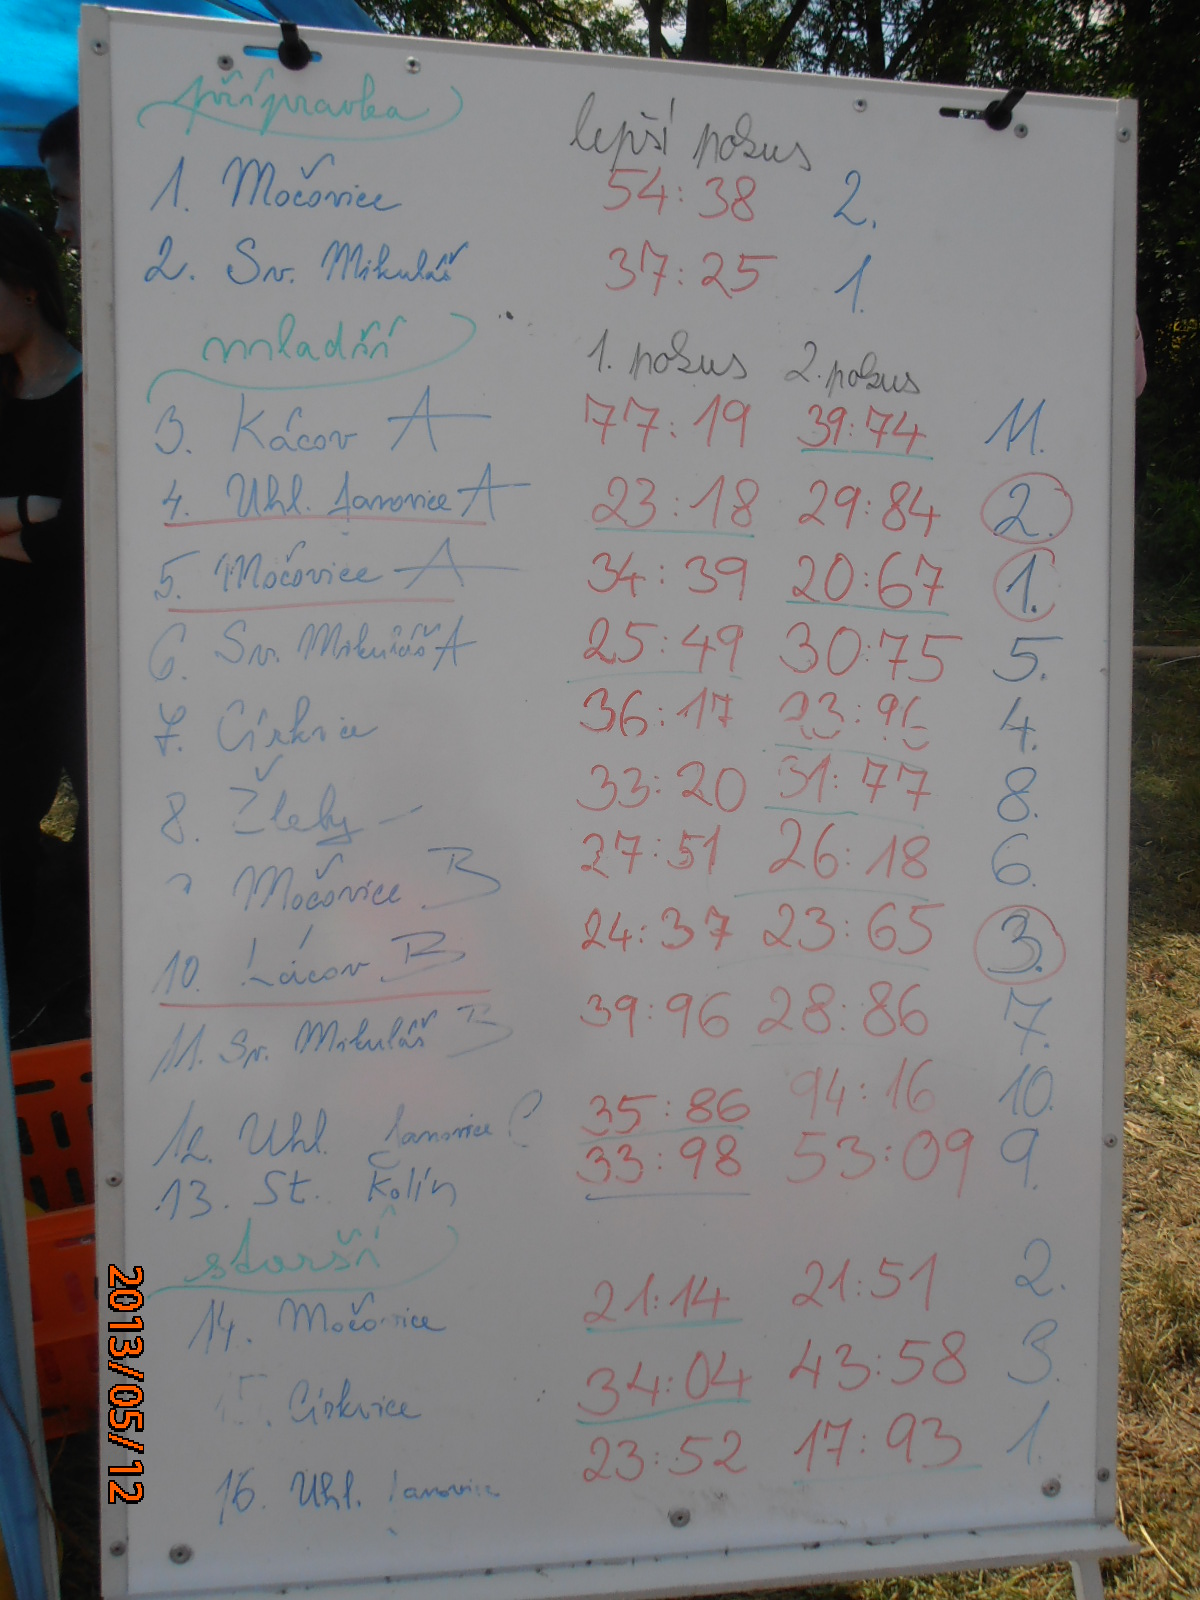 přípravka
lepší pokus
1. Močovice 54:38 2.
2. Sv. Mikuláš 37:25 1.
mladší 1. pokus 2. pokus
3. Kácov A 77:19 39:74 11.
4. Uhl. Janovice A 23:18 29:84 2.
5. Močovice A 34:39 20:67 1.
6. Sv. Mikuláš A 25:49 30:75 5.
7. Církvice 36:17 23:96 4.
8. Žleby 33:20 31:77 8.
Močovice B 27:51 26:18 6.
10. Kácov B 24:37 23:65 3.
11. Sv. Mikuláš B 39:96 28:86 7.
12. Uhl. Janovice 35:86 94:16 10.
13. St. Kolín 33:98 53:09 9.
starší
14. Močovice 21:14 21:51 2.
15. Církvice 34:04 43:58 3.
16. Uhl. Janovice 23:52 17:93 1.
2013/05/12